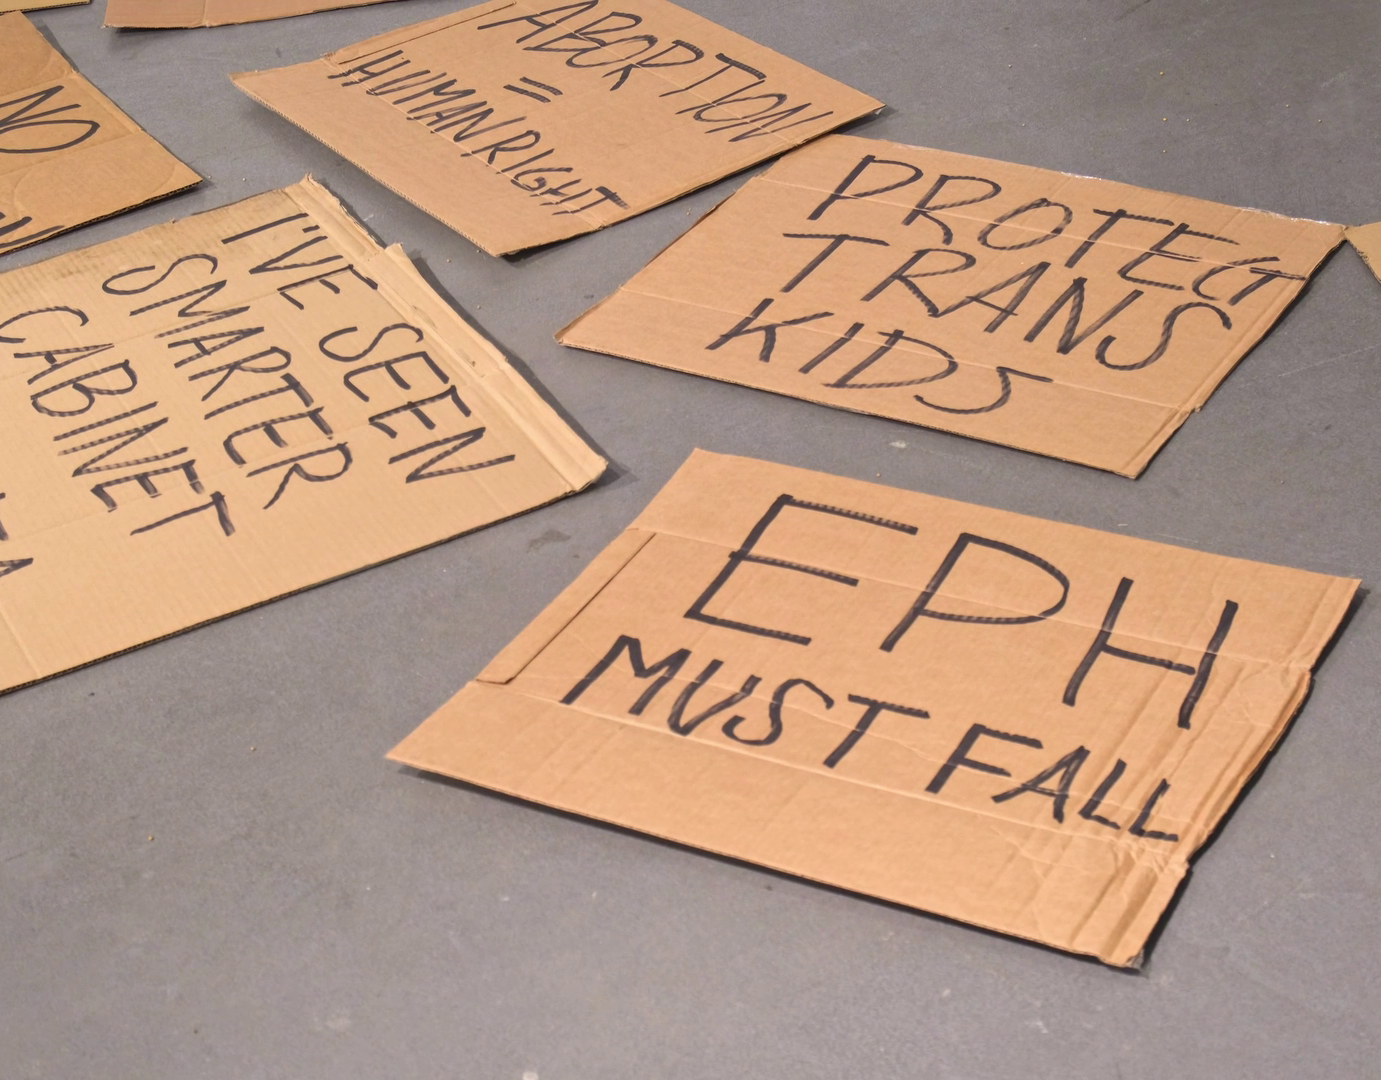 ABORTION
=
HUMAN RIGHT
NO
PROTECT
TRANS
KIDS
I'VE SEEN
SMARTER
CABINET
EPH
MUST FALL